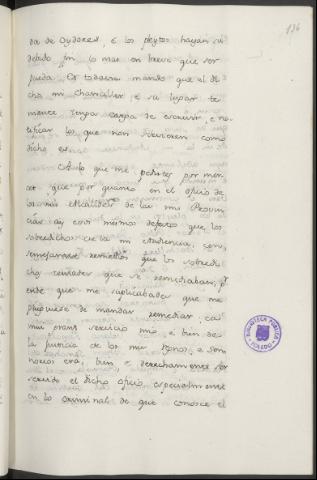 136
cia de Oydores, é los pleytos hayan su
debido fin lo mas en breve que ser
pueda. Et todavia mando que el di
cho mi Chanciller é su lugar te
niente tenga cargo de escrivir, é no
tificar los que non sirvieren como
dicho es.
A lo que me pedistes por mer
ced que por quanto en el oficio de
los mis Alcalldes de las mis Provin
cias ay esos mismos defectos que los
sobredichos de la mi Audiencia, con
semejantes remedios que los sobredi
chos cuidades que se remediaban, por
ende que me suplicabades que me
pluguiese de mandar remediar, ca
muy grant servicio mio é bien de
la Justicia de los mis Regnos, é
era, bien é derechamente ser
servido el dicho oficio, especialmente
en lo criminal de que conosce el
BIBLIOTECA PUBLICA